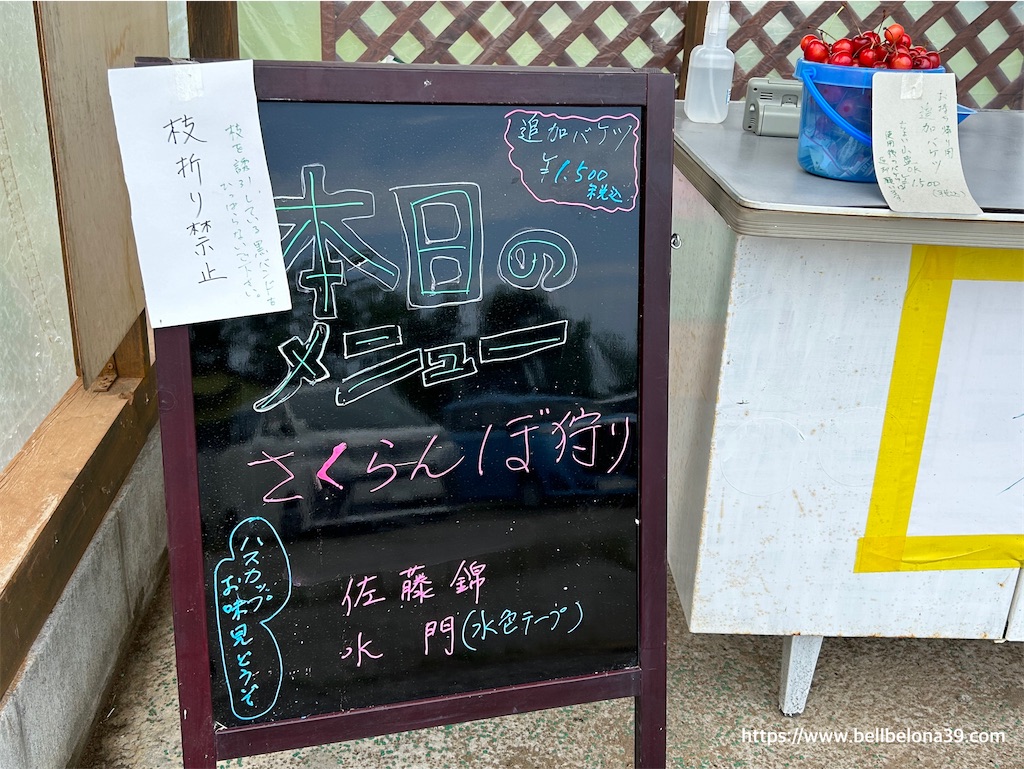 枝折り禁止
枝を誘引している黒いバンドを
ひっぱらないで下さい。
追加バケツ
¥1.500
税込
本日の
メニュー
さくらんぼ狩り
佐藤錦
水門(水色テープ)
ハスカップ
お味見どうぞ
お持ち帰り用
追加バケツ
1500
https://www.bellbelona39.com